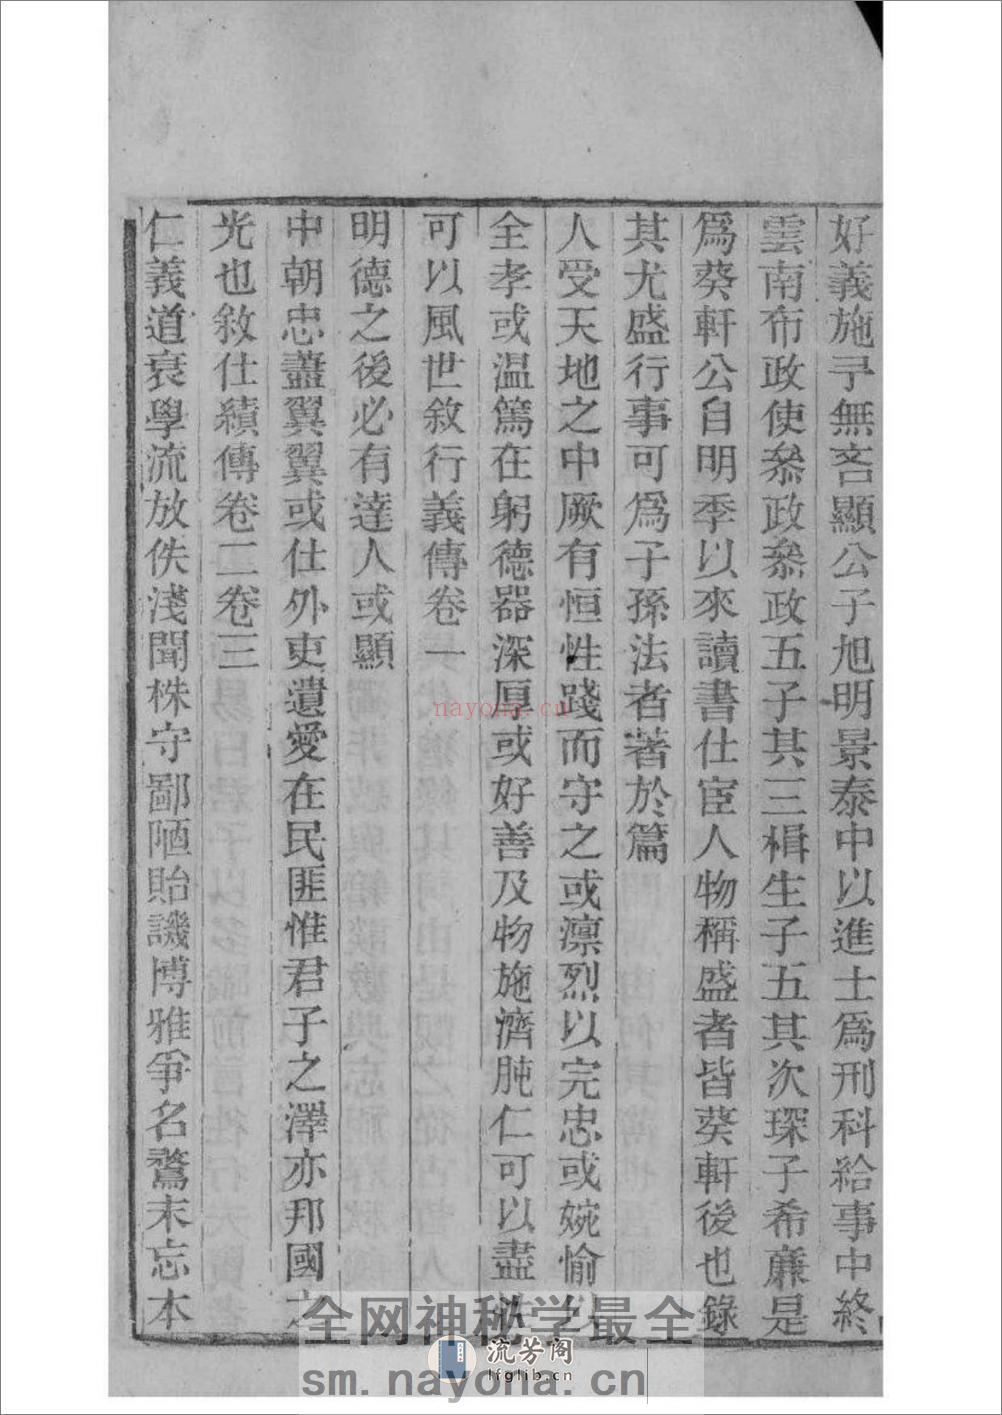 好義施予無吝顯公子旭明景泰中以進士爲刑科給事中終
雲南布政使叅政叅政五子其三楫生子五其次琛子希亷是
爲葵軒公自明季以來讀書仕宦人物稱盛者皆葵軒後也錄
其尤盛行事可爲子孫法者著於篇
人受天地之中厥有恒性踐而守之或凛烈以完忠或婉愉以
全孝或温篤在躬德器深厚或好善及物施濟肫仁可以盡
可以風世敘行義傳卷一
明德之後必有達人或顯
中朝忠藎翼翼或仕外吏遺愛在民匪惟君子之澤亦邦國之
光也敘仕績傳卷二卷三
仁義道衰學流放佚淺聞株守鄙陋貽譏博雅爭名鶩末忘本
nayona.cn
全网神秘学最全
流芳阁
lfglib.cn
sm.nayona.cn